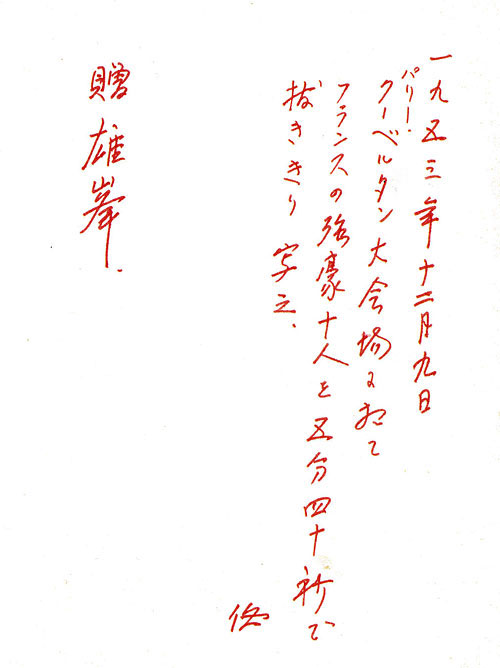 一九五三年十二月九日
パリー・クーベルタン大会場に於て
フランスの強豪十人を五分四十秒で
抜ききり 写之、
贈 雄峯.